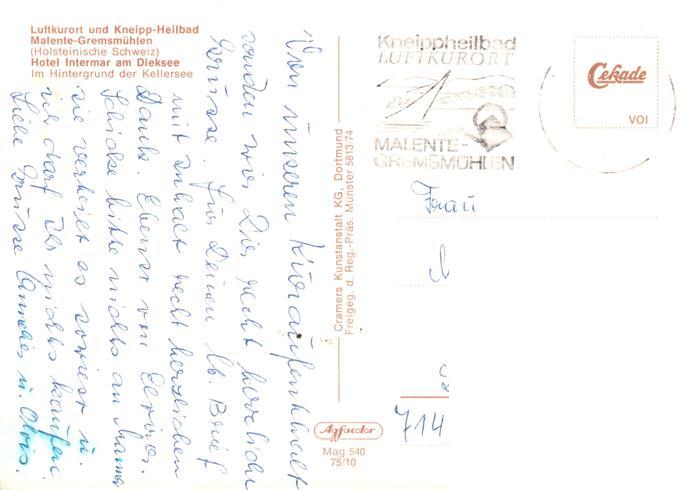 Luftkurort und Kneipp-Heilbad
Malente-Gremsmühlen
(Holsteinische Schweiz)
Hotel Intermar am Dieksee
Im Hintergrund der Kellersee
Von unseren Kuraufenthalt
senden wir Dir recht herzliche
Grüsse. Für Deinen lb. Brief
mit Inhalt recht herzlichen
Dank. Ebenso von
Schicke bitte nichts an
sie verteilt es sowieso u.
ich darf ihr nichts kaufen.
Liebe Grüsse Annelies u.
Cramers Kunstanstalt KG, Dortmund
Freigeg. d. Reg.-Präs. Münster 5813-74
Agfacolor
Mag 540
75/10
Kneippheilbad
LUFTKURORT
MALENTE-
GREMSMÜHLEN
Cekade
VOI
Frau
714